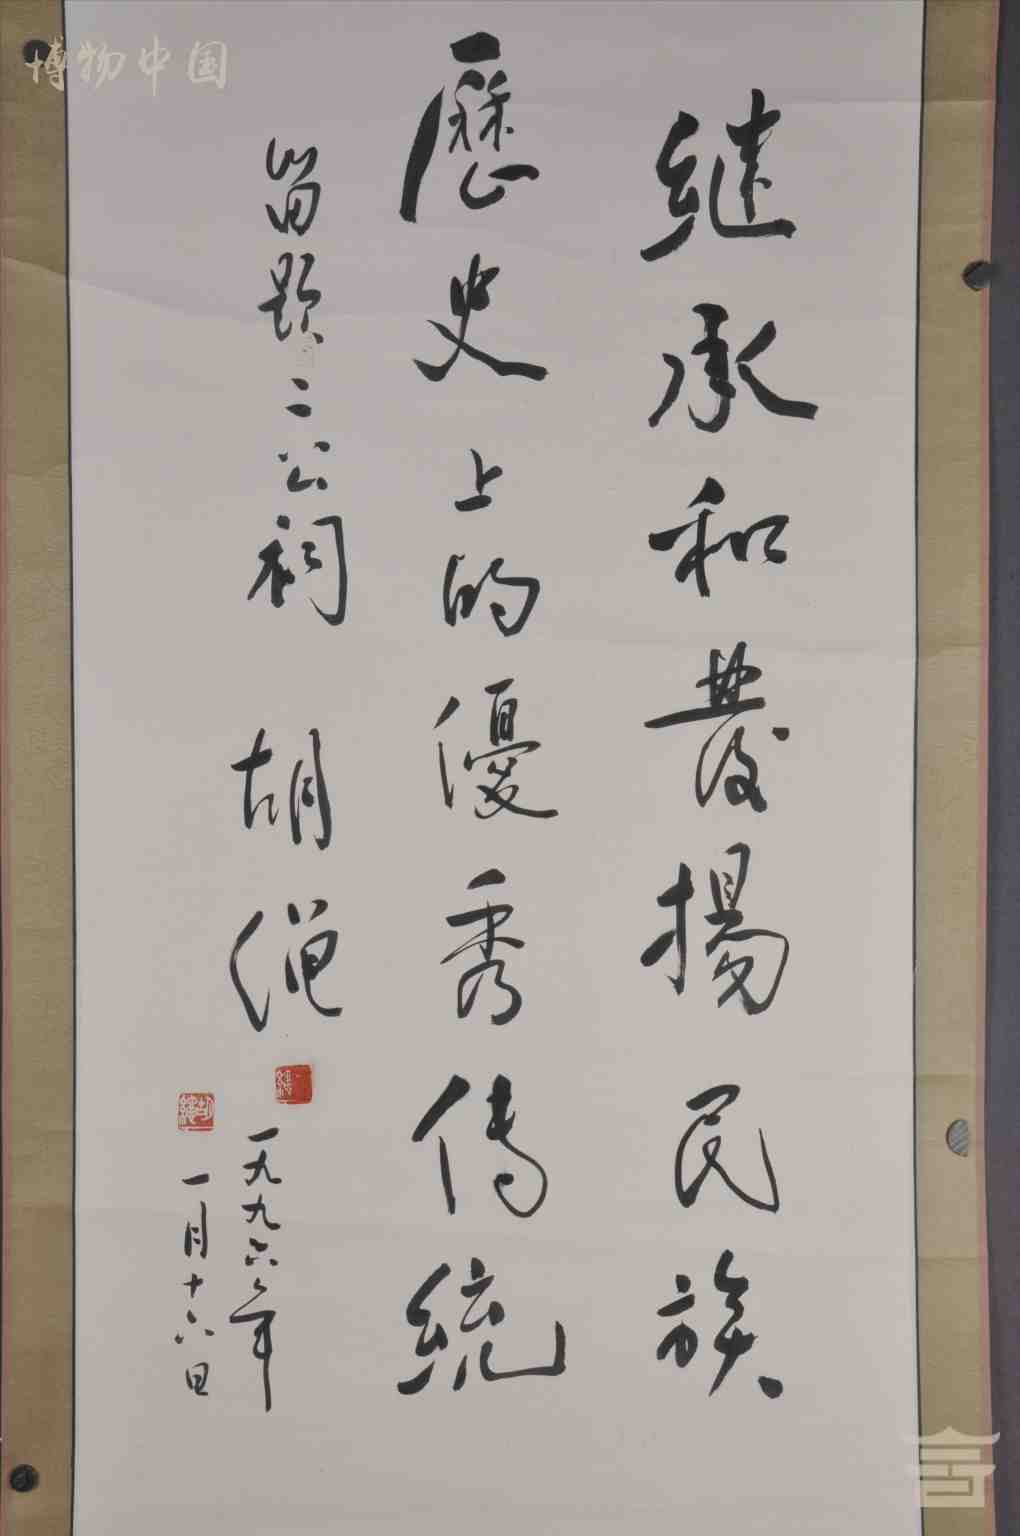 继承和發揚民族
歷史上的優秀傳統
留題二公祠
胡绳
一九九六年
一月十六日
胡繩
博物中国